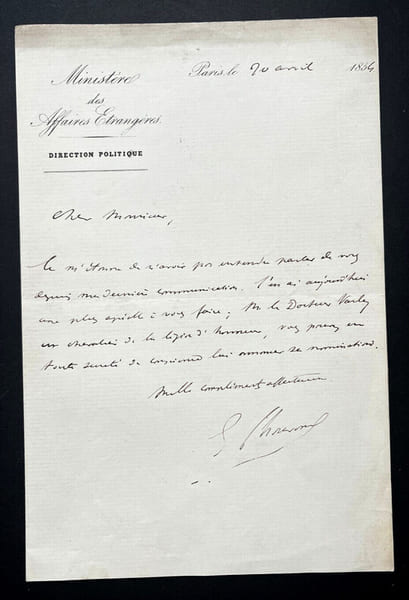 Ministère
des
Affaires Etrangères.
DIRECTION POLITIQUE
Paris, le avril 1864
Cher Monsieur,
Je m'étonne de n'avoir pas entendu parler de vous
depuis ma dernière communication. J'en ai aujourd'hui
une plus agréable à vous faire; M. le Docteur
est chevalier de la légion d'honneur, vous pouvez en
toute sureté de conscience lui annoncer sa nomination.
Mille compliments affectueux